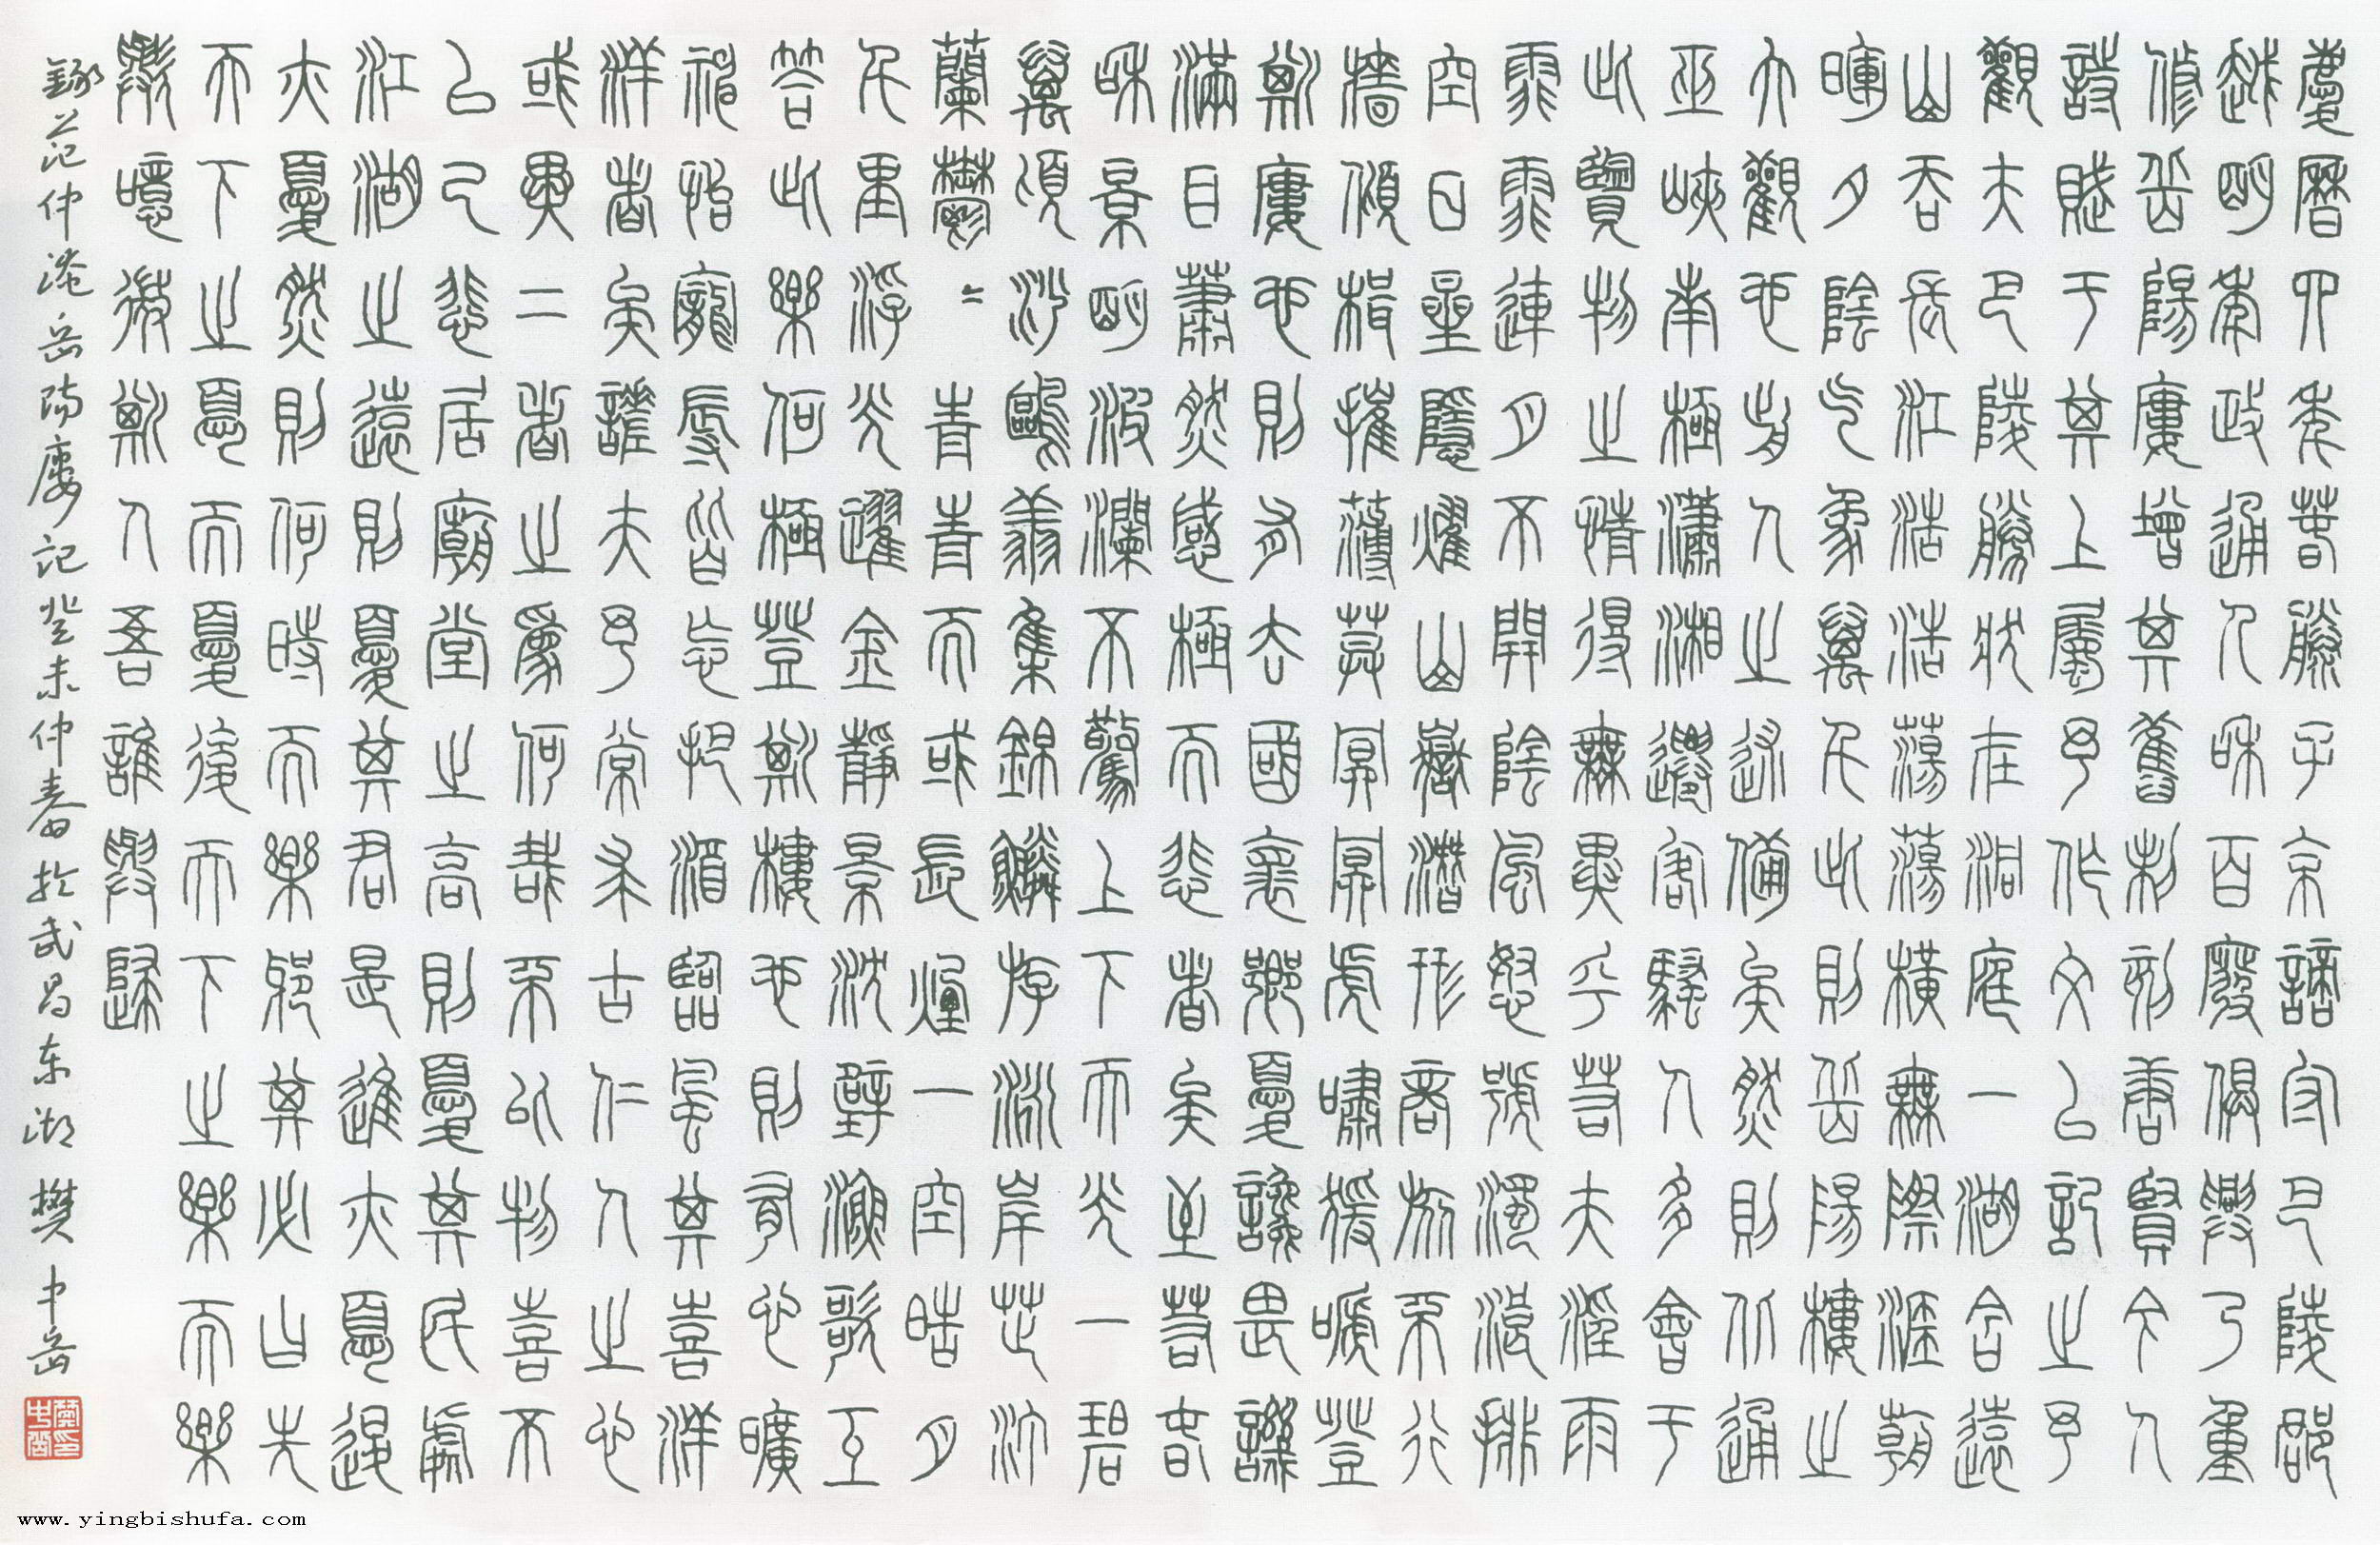 慶曆四年春滕子京謫守巴陵郡
越明年政通人和百廢俱興乃重
修岳陽樓增其舊制刻唐賢今人
詩賦于其上屬予作文以記之予
觀夫巴陵勝狀在洞庭一湖含遠
山吞長江浩浩蕩蕩橫無際涯朝
暉夕陰气象萬千此則岳陽樓之
大觀也前人之述備矣然則北通
巫峽南極瀟湘遷客騷人多會于
此覽物之情得無異乎若夫淫雨
霏霏連月不開陰風怒號濁浪排
空日星隱耀山嶽潛形商旅不行
檣傾楫摧薄莫冥冥虎嘯猨嗁登
斯樓也則有去國懷鄉憂讒畏譏
滿目蕭然感極而悲者矣至若春
和景明波瀾不驚上下天光一碧
萬頃沙鷗翔集錦鱗游泳岸芷汀
蘭鬱〻青青而或長煙一空皓月
千里浮光躍金靜景沈璧漁歌互
答此樂何極登斯樓也則有心曠
神怡寵辱皆忘把酒臨風其喜洋
洋者矣嗟夫予嘗求古仁人之心
或異二者之為何哉不以物喜不
以己悲居廟堂之高則憂其民處
江湖之遠則憂其君是進亦憂退
亦憂然則何時而樂邪其必曰先
天下之憂而憂後天下之樂而樂
歟噫微斯人吾誰與歸
錄范仲淹岳陽樓記癸未仲春於武昌东湖樊中岳
www.yingbishufa.com